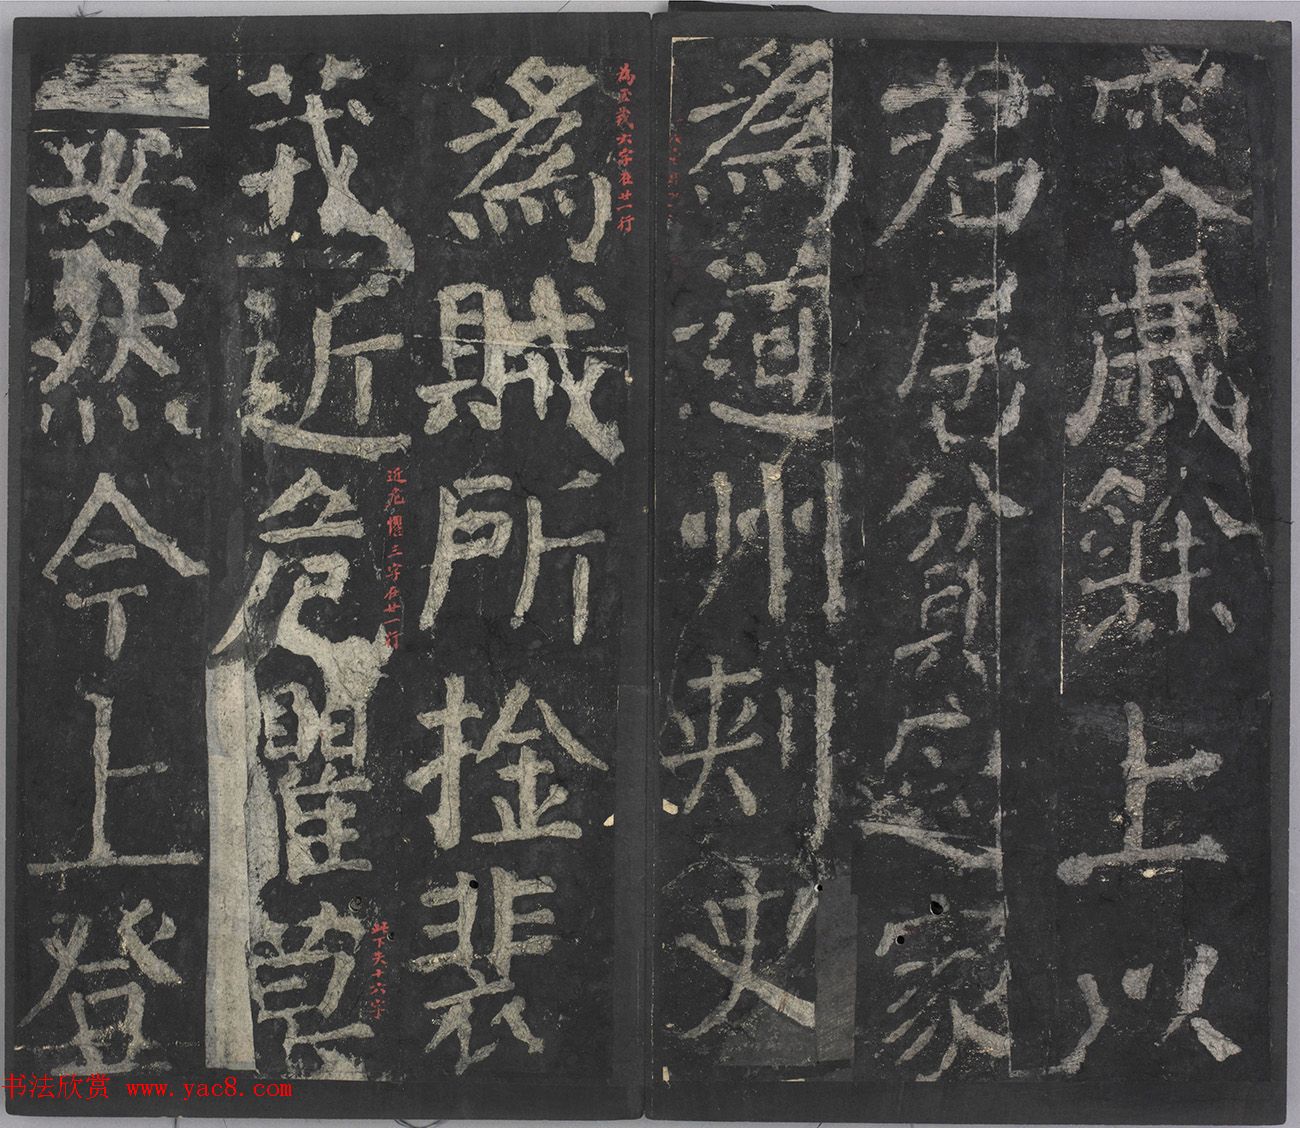 人歲餘上以
君居貧起家
為道州刺史
為至茙六字在廿一行
為賊所捦裴
茙近危懼
近危懼三字在廿一行
此下失十六字
安然今上登
书法欣赏 www.yac8.com